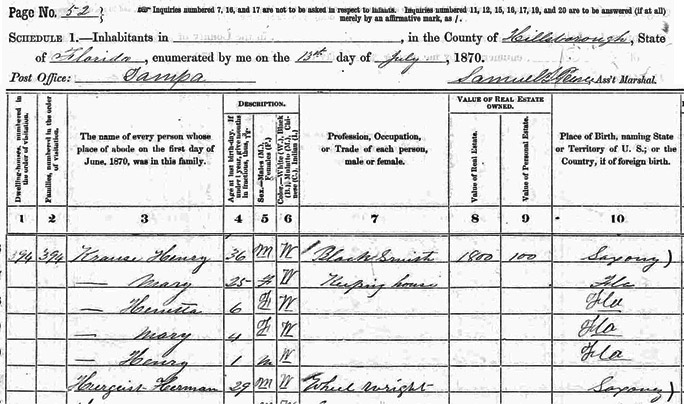 Page No. 52 Inquiries numbered 7, 16, and 17 are not to be asked in respect to infants. Inquiries numbered 11, 12, 15, 16, 17, 19, and 20 are to be answered (if at all)
merely by an affirmative mark, as /.
SCHEDULE 1.—Inhabitants in , in the County of Hillsborough, State
of Florida, enumerated by me on the 13th day of July, 1870.
Post Office: Tampa Samuel Ass't Marshal.
Dwelling-houses, numbered in the order of visitation.
Families, numbered in the order of visitation.
The name of every person whose place of abode on the first day of June, 1870, was in this family.
DESCRIPTION.
Age at last birth-day. If under 1 year, give months in fractions, thus,
Sex.—Males (M.), Females (F.)
Color.—White (W.), Black (B.), Mulatto (M.), Chinese (C.), Indian (I.)
Profession, Occupation, or Trade of each person, male or female.
VALUE OF REAL ESTATE OWNED.
Value of Real Estate.
Value of Personal Estate.
Place of Birth, naming State or Territory of U. S.; or the Country, if of foreign birth.
1 2 3 4 5 6 7 8 9 10
394 394 Krause Henry 36 M W Black Smith 1800 100 Saxony
— Mary 25 F W Keeping house Fla
— Henretta 6 F W Fla
— Mary 4 F W Fla
— Henry 1 m W Fla
Herman 29 M W Wheel wright Saxony